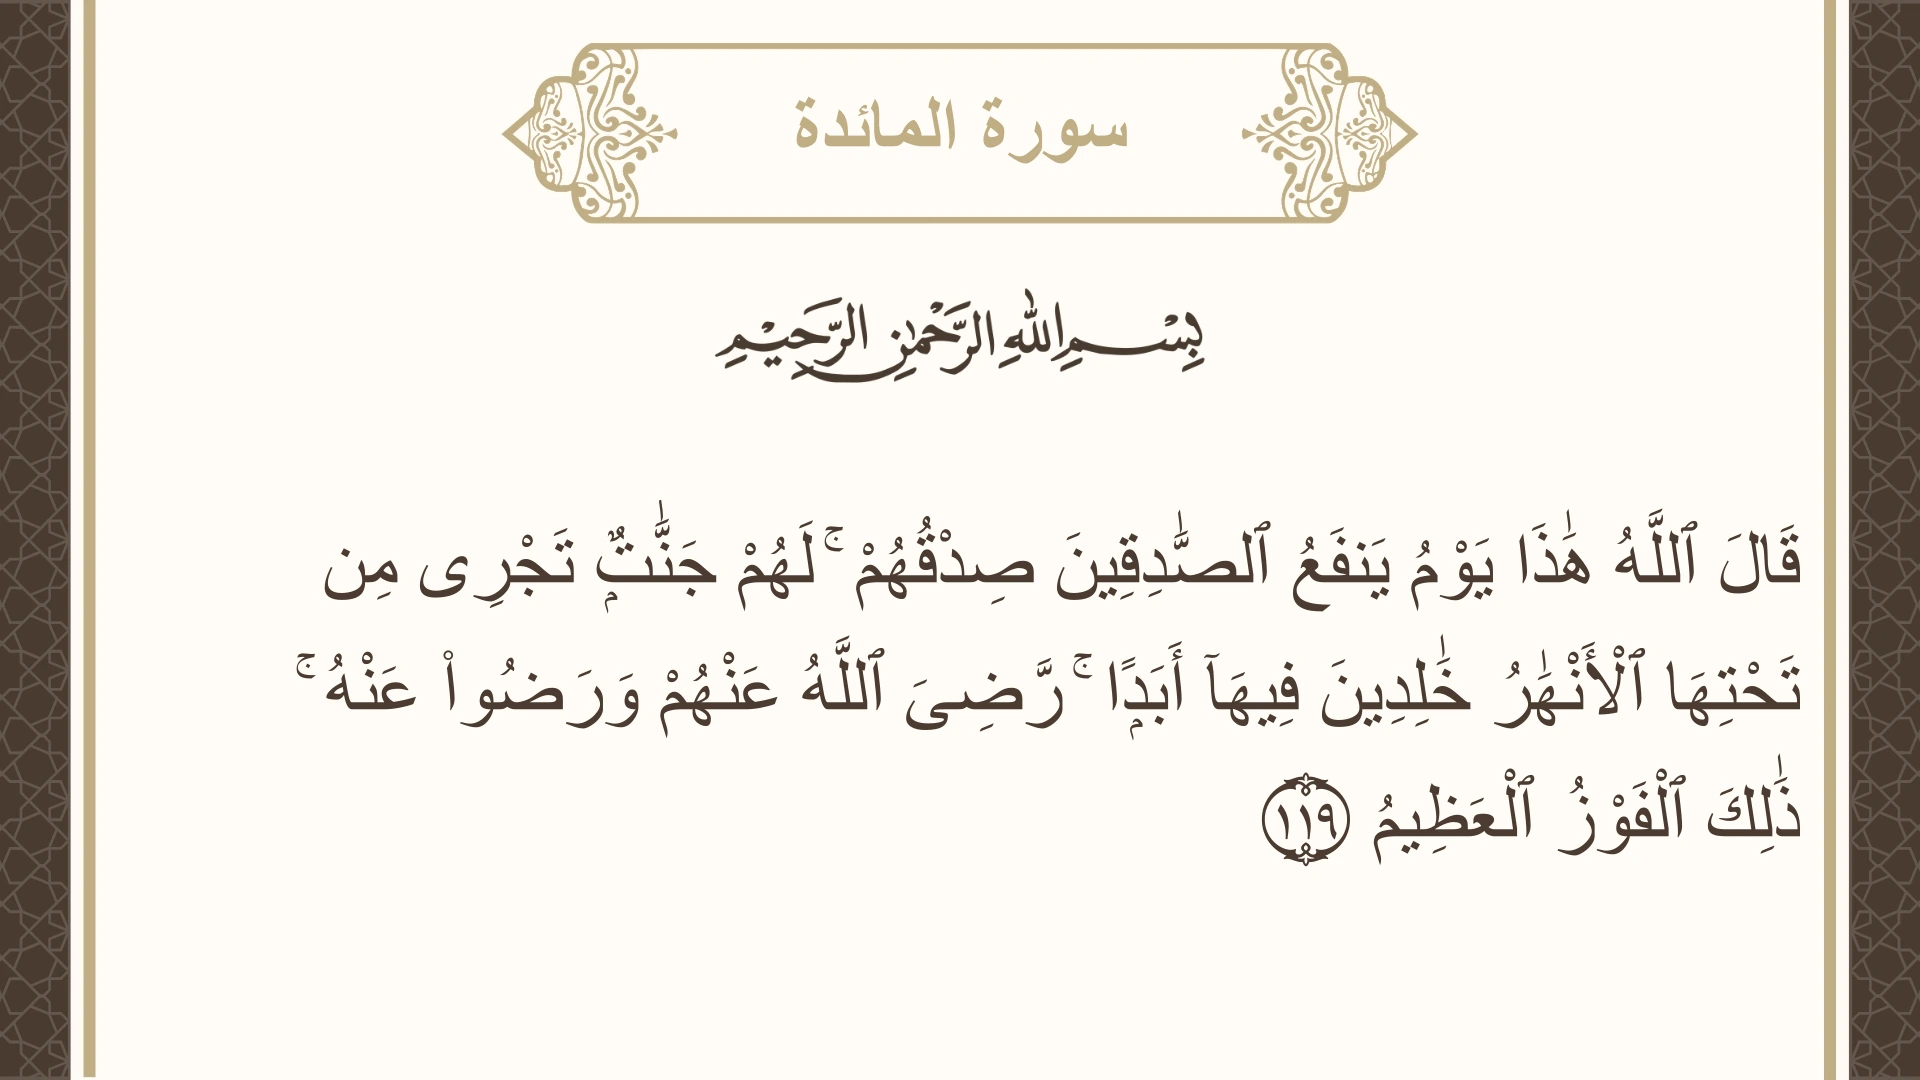 سورة المائدة
بِسْمِ اللهِ الرَّحْمٰنِ الرَّحِيْمِ
قَالَ ٱللَّهُ هَٰذَا يَوْمُ يَنفَعُ ٱلصَّٰدِقِينَ صِدْقُهُمْ ۚ لَهُمْ جَنَّٰتٌۭ تَجْرِى مِن
تَحْتِهَا ٱلْأَنْهَٰرُ خَٰلِدِينَ فِيهَآ أَبَدًۭا ۚ رَّضِىَ ٱللَّهُ عَنْهُمْ وَرَضُوا۟ عَنْهُ ۚ
ذَٰلِكَ ٱلْفَوْزُ ٱلْعَظِيمُ ١١٩